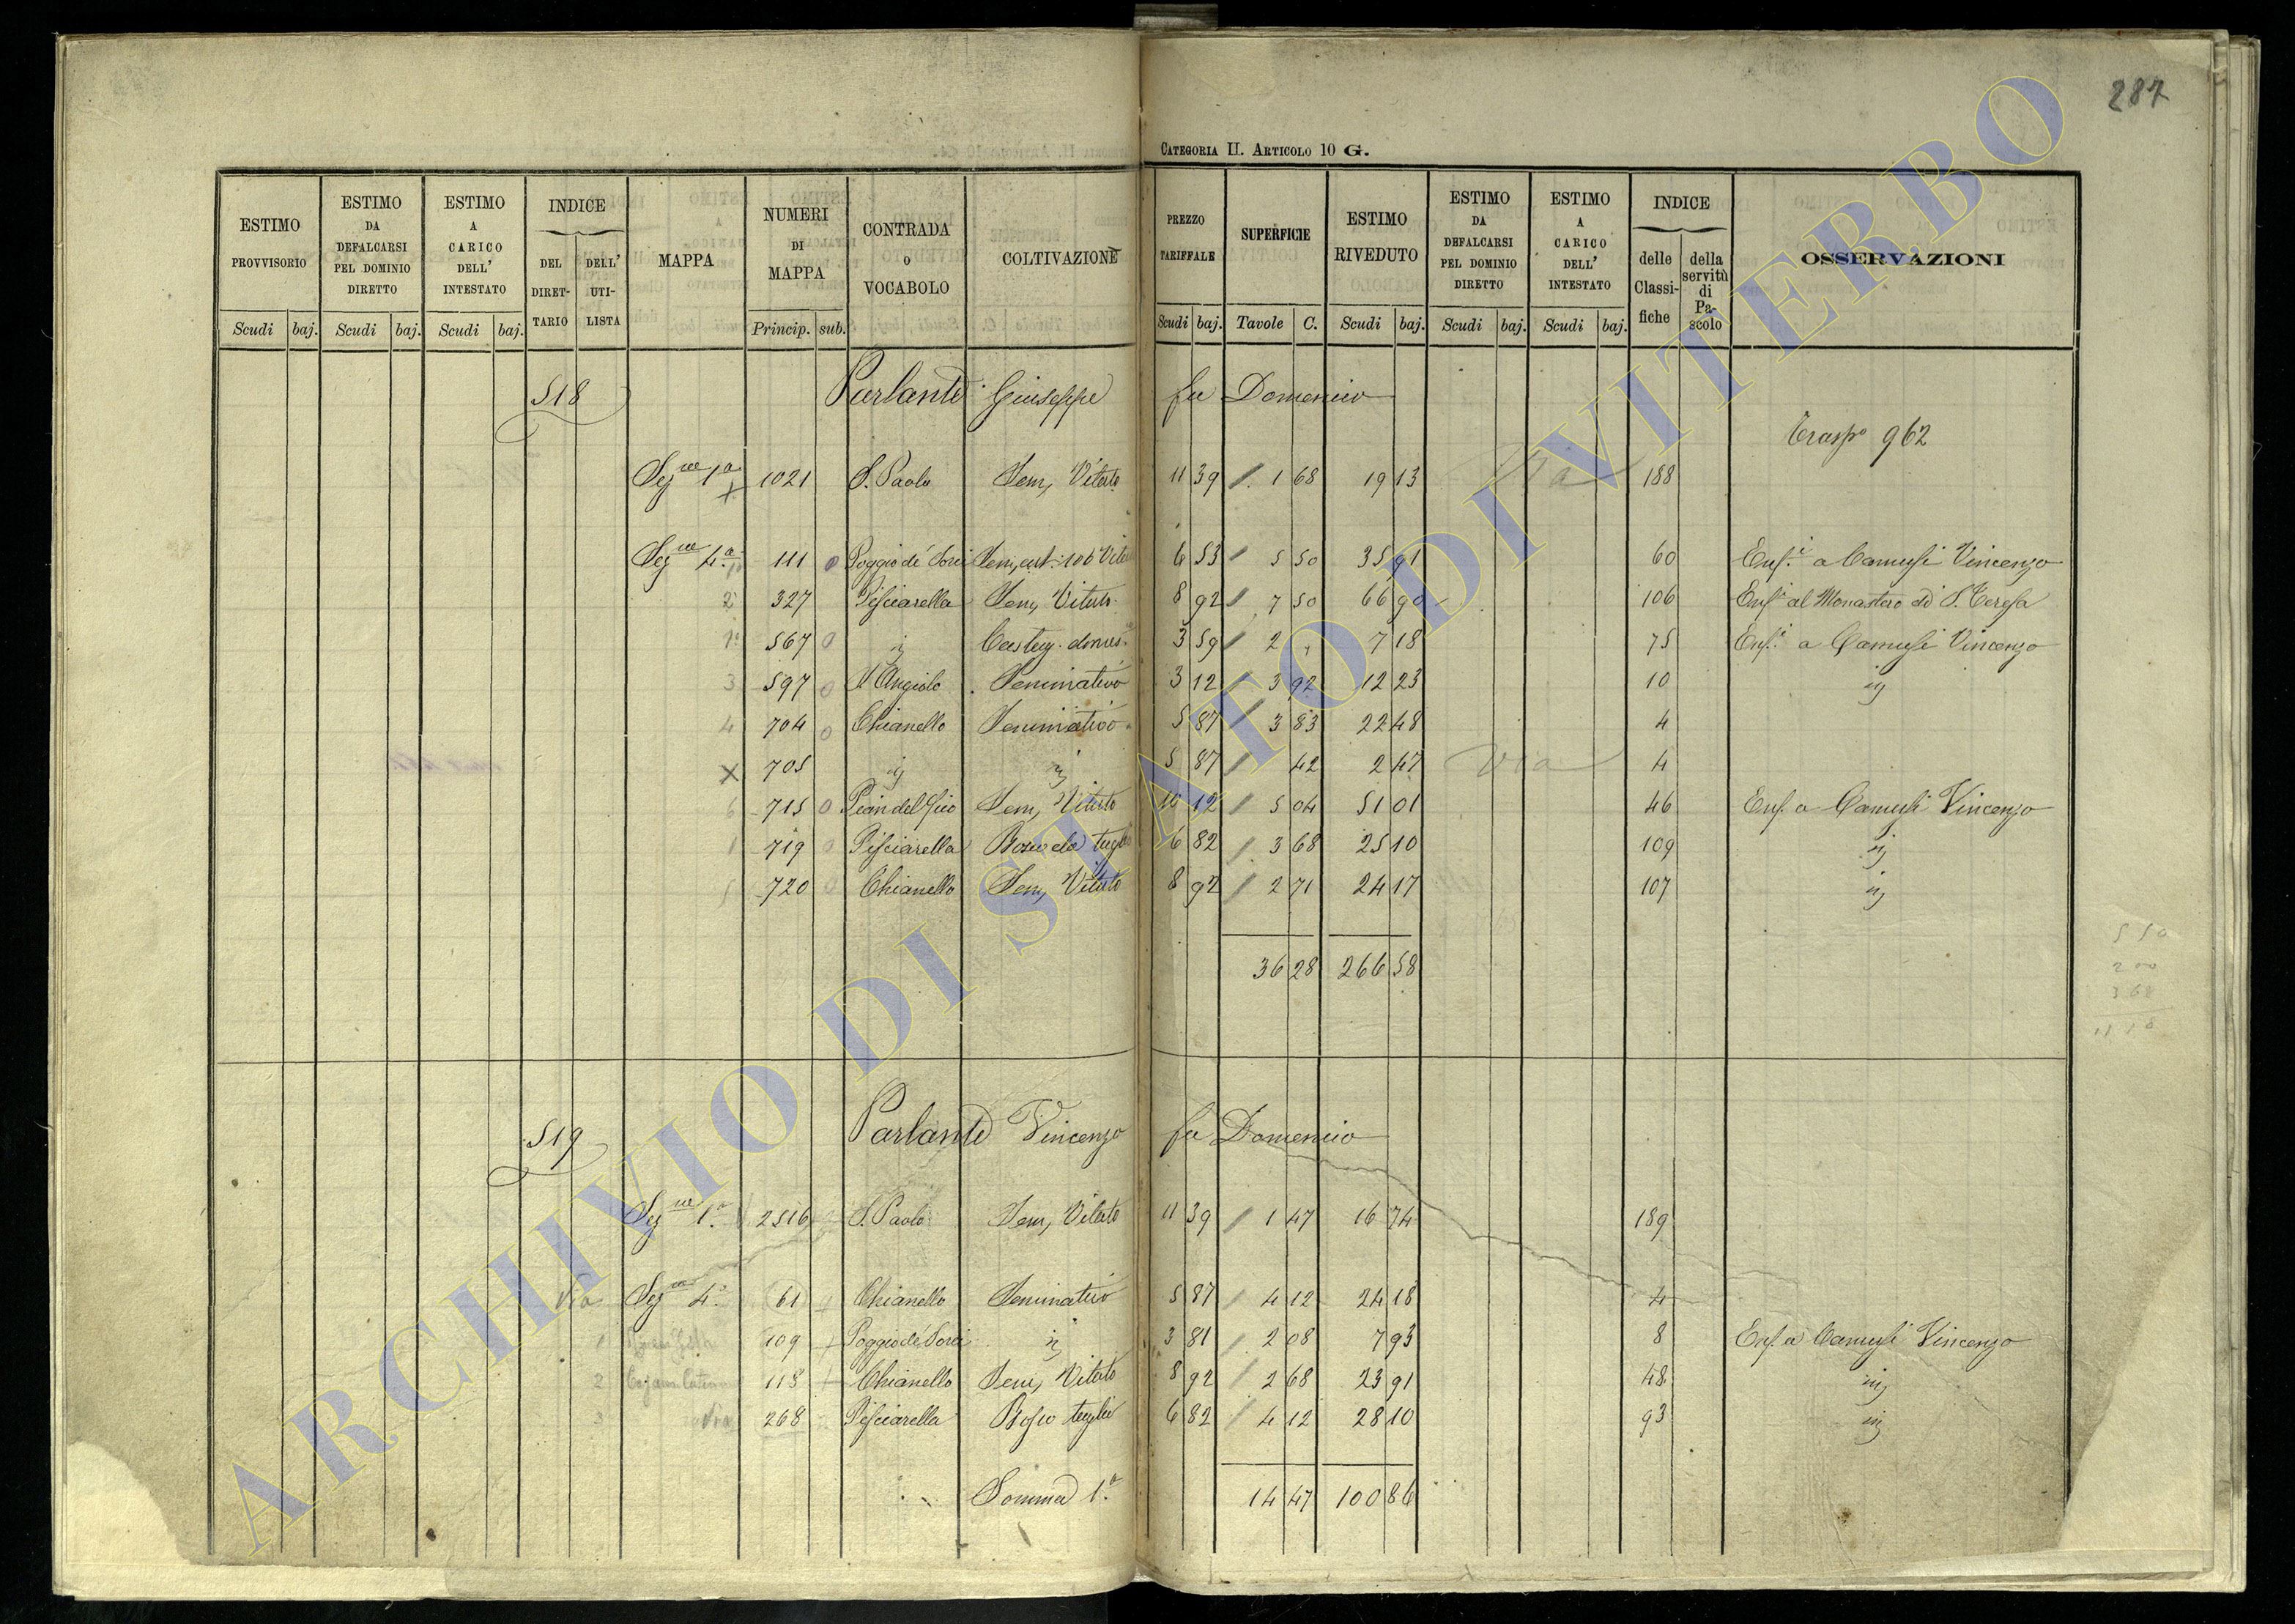 287
CATEGORIA II. ARTICOLO 10 G.
ESTIMO PROVVISORIO Scudi baj.
ESTIMO DA DEFALCARSI PEL DOMINIO DIRETTO Scudi baj.
ESTIMO A CARICO DELL' INTESTATO Scudi baj.
INDICE DEL DIRET-TARIO DELL' UTI-LISTA
MAPPA
NUMERI DI MAPPA Princip. sub.
CONTRADA O VOCABOLO
COLTIVAZIONE
PREZZO TARIFFALE Scudi baj.
SUPERFICIE Tavole C.
ESTIMO RIVEDUTO Scudi baj.
ESTIMO DA DEFALCARSI PEL DOMINIO DIRETTO Scudi baj.
ESTIMO A CARICO DELL' INTESTATO Scudi baj.
INDICE delle Classi-fiche della servitù di Pa-scolo
OSSERVAZIONI
518 Parlanti Giuseppe fu Domenico
Trasp.o 962
Sez.ne 1.a x 1021 S. Paolo Sem, Vitato 11 39 1 68 19 13 Via 188
Sez.ne 4.a 1 111 0 Poggio de' Sorci 6 53 5 50 35 91 60 Enf.i a Camusi Vincenzo
2 327 Pisciarella Sem, Vitato 8 92 7 50 66 90 106 Enf.i al Monastero di S. Teresa
1 567 0 ij Castag. domes. 3 59 2 " 7 18 75 Enf.i a Camusi Vincenzo
3 597 0 S. Angiolo Seminativo 3 12 3 92 12 23 10 ij
4 704 0 Chianello Seminativo 5 87 3 83 22 48 4
x 705 ij ij 5 87 42 2 47 Via 4
6 715 0 Sem, Vitato 10 12 5 04 51 01 46 Enf. a Camusi Vincenzo
1 719 0 Pisciarella Bosco da taglio 6 82 3 68 25 10 109 ij
5 720 0 Chianello Sem, Vitato 8 92 2 71 24 17 107 ij
36 28 266 58
5 50
2 00
3 68
11 18
519 Parlanti Vincenzo fu Domenico
Sez.ne 1.a 2516 S. Paolo Sem, Vitato 11 39 1 47 16 74 189
Via Sez.ne 4.a 61 Chianello Seminativo 5 87 4 12 24 18 4
1 109 Poggio de' Sorci ij 3 81 2 08 7 93 8 Enf. a Camusi Vincenzo
2 118 Chianello Sem, Vitato 8 92 2 68 23 91 48 ij
3 Via 268 Pisciarella Bosco taglio 6 82 4 12 28 10 93 ij
Somma 1.a 14 47 100 86
ARCHIVIO DI STATO DI VITERBO